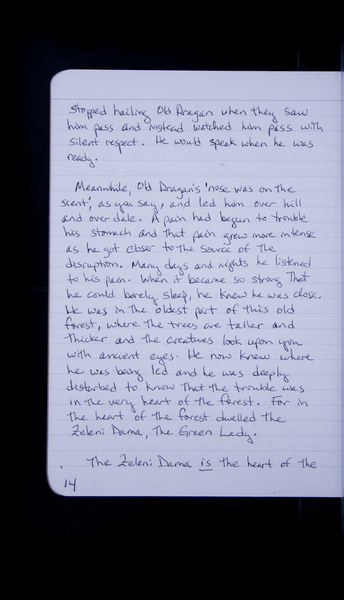 stopped hailing Old Dragan when they saw
him pass and instead watched him pass with
silent respect. He would speak when he was
ready.
Meanwhile, Old Dragan's 'nose was on the
scent', as you say, and led him over hill
and over dale. A pain had begun to trouble
his stomach and that pain grew more intense
as he got closer to the source of the
disruption. Many days and nights he listened
to his pain. When it became so strong that
he could barely sleep, he knew he was close.
He was in the oldest part of this old
forest, where the trees are taller and
thicker and the creatures look upon you
with ancient eyes. He now knew where
he was being led and he was deeply
disturbed to know that the trouble was
in the very heart of the forest. For in
the heart of the forest dwelled the
Zeleni Dama, The Green Lady.
The Zeleni Dama is the heart of the
14